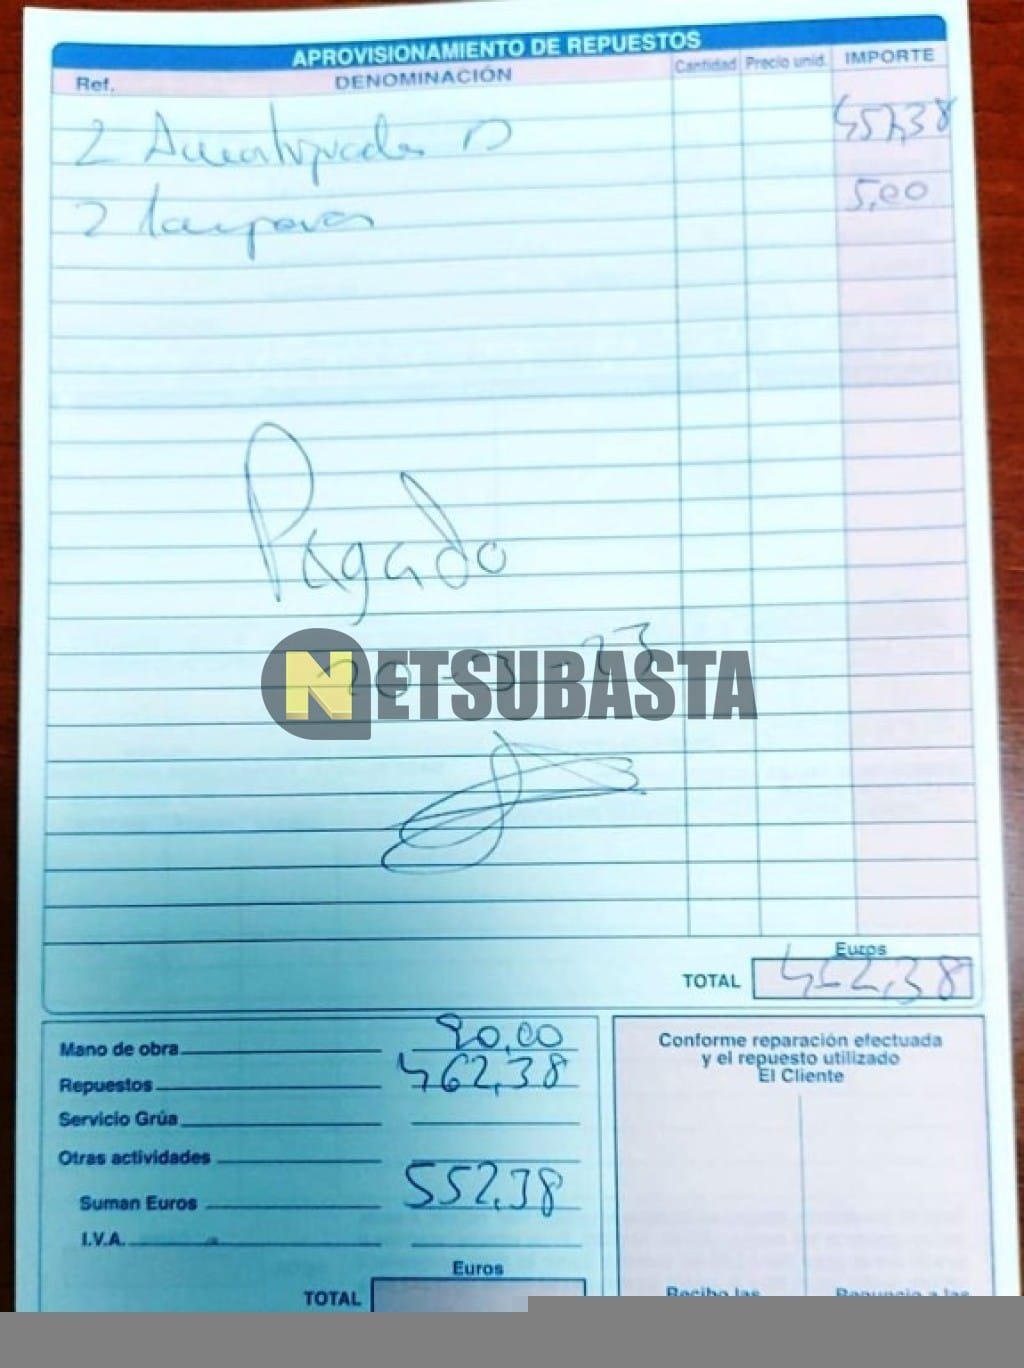 APROVISIONAMIENTO DE REPUESTOS
Ref. DENOMINACIÓN Cantidad Precio unid. IMPORTE
2 Amortiguadores D 457,38
2 5,00
Pagado
NETSUBASTA
Euros
TOTAL 462,38
Mano de obra 90,00
Repuestos 462,38
Servicio Grúa
Otras actividades
Suman Euros 552,38
I.V.A.
Euros
TOTAL
Conforme reparación efectuada
y el repuesto utilizado
El Cliente
Recibo las Renuncio a las